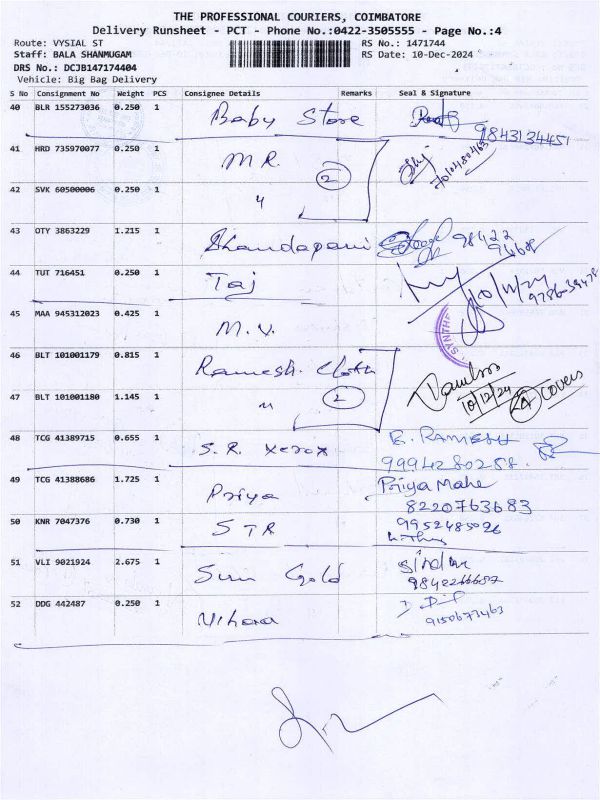 THE PROFESSIONAL COURIERS, COIMBATORE
Delivery Runsheet - PCT - Phone No.:0422-3505555 - Page No.:4
Route: VYSIAL ST RS No.: 1471744
Staff: BALA SHANMUGAM RS Date: 10-Dec-2024
DRS No.: DCJB147174404
Vehicle: Big Bag Delivery
S No Consignment No Weight PCS Consignee Details Remarks Seal & Signature
40 BLR 155273036 0.250 1 Baby Store
9843134451
41 HRD 735970077 0.250 1 M R. 2
42 SVK 60500006 0.250 1 "
43 OTY 3863229 1.215 1 Dhandapani 98422
94688
44 TUT 716451 0.250 1 Taj
45 MAA 945312023 0.425 1 M. V.
SYNTHE
46 BLT 101001179 0.815 1 Ramesh. Cloth
47 BLT 101001180 1.145 1 " 2 10/12/24 Covers
48 TCG 41389715 0.655 1 S. R. Xerox E. RAMESH
9994280258.
49 TCG 41388686 1.725 1 Priya Priya Mahe
8220763683
50 KNR 7047376 0.730 1 S T R 9952485026
51 VLI 9021924 2.675 1 Gold
52 DDG 442487 0.250 1 Vihana
9150673463